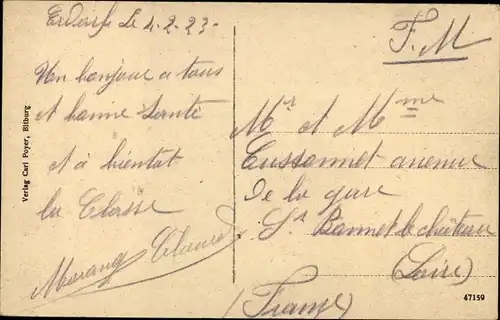 Le 4-2-23
F. M
Un bonjour a tous
et bonne Santé
et à bientot
la Classe
Mr et Mme
avenue
De la gare
St Bonnet le château
(Loire)
(France)
Verlag Carl Poyer, Bitburg
47159